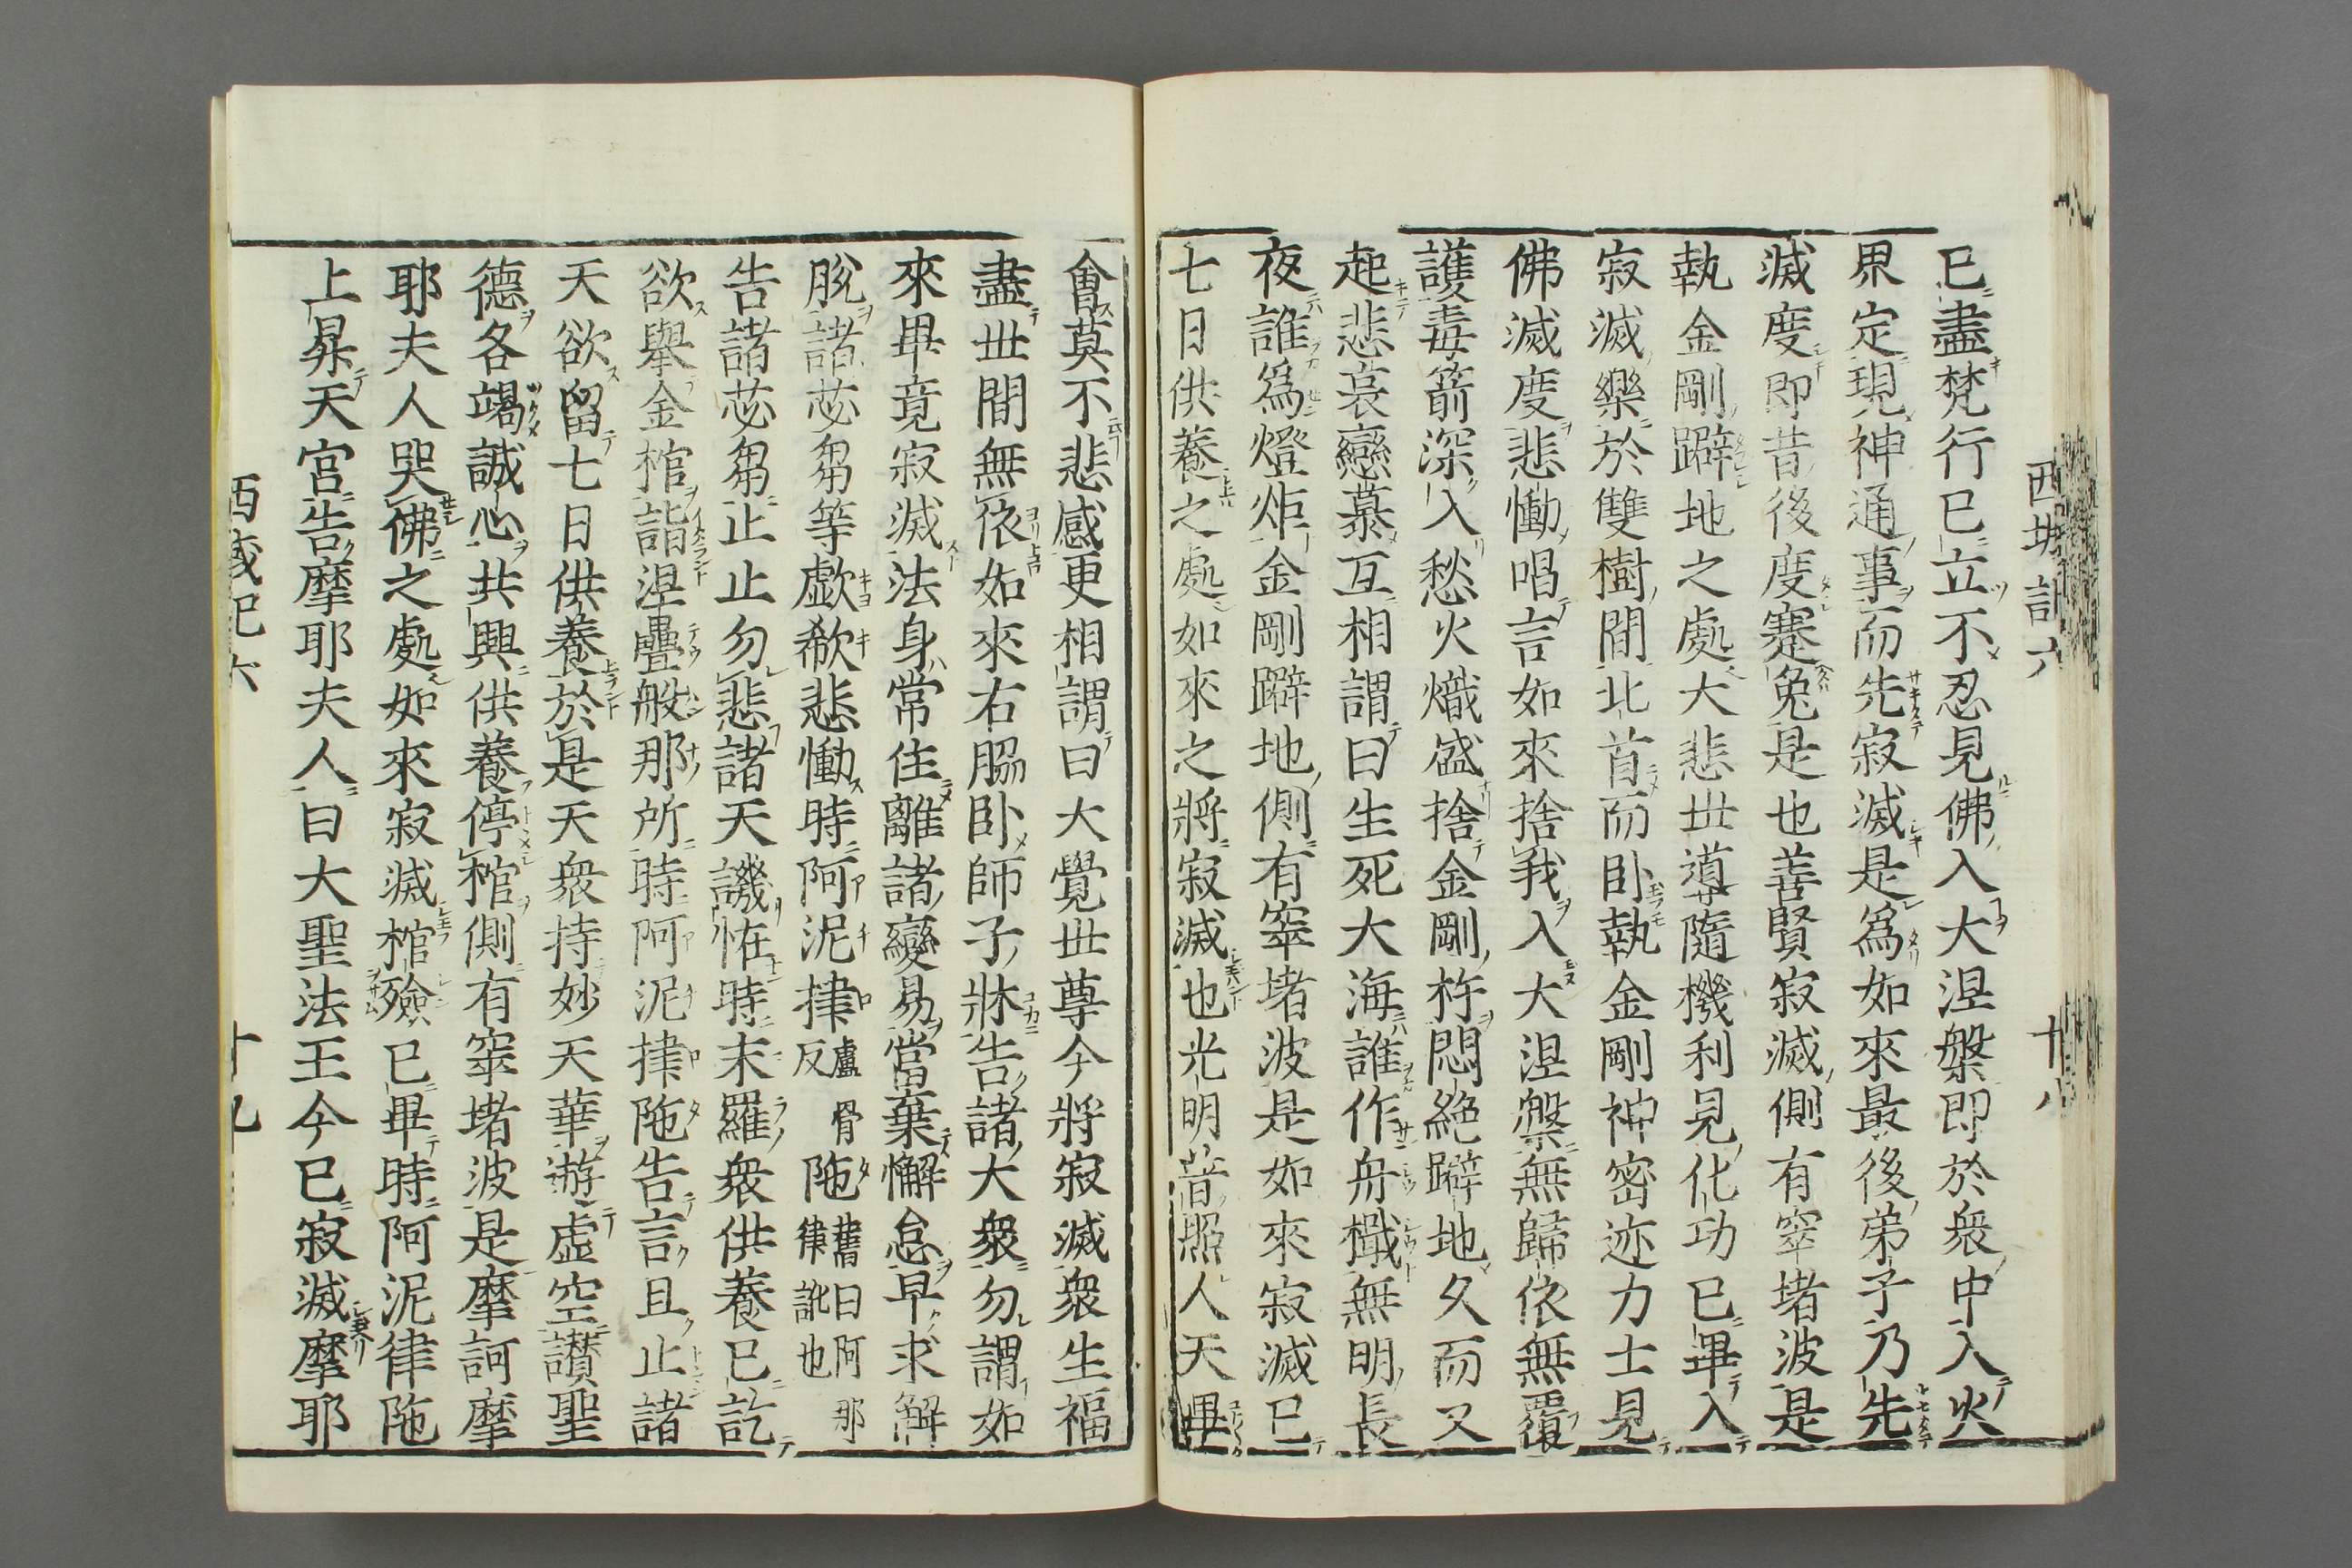 西域記六 十八
已盡梵行已立不忍見佛入大涅槃即於衆中入火
界定現神通事而先寂滅是爲如來最後弟子乃先
滅度即昔後度蹇兔是也善賢寂滅側有窣堵波是
執金剛躃地之處大悲世導隨機利見化功已畢入
寂滅樂於雙樹間北首而卧執金剛神密迹力士見
佛滅度悲慟唱言如來捨我入大涅槃無歸依無覆
護毒箭深入愁火熾盛捨金剛杵悶絶躃地久而又
起悲哀戀慕互相謂曰生死大海誰作舟檝無明長
夜誰爲燈炬金剛躃地側有窣堵波是如來寂滅已
七日供養之處如來之將寂滅也光明普照人天畢
會莫不悲感更相謂曰大覺世尊今將寂滅衆生福
盡世間無依如來右脇卧師子牀告諸大衆勿謂如
來畢竟寂滅法身常住離諸變易當棄懈怠早求解
脫諸苾芻等歔欷悲慟時阿泥㨖盧骨反陁舊曰阿那律訛也
告諸苾芻止止勿悲諸天譏恠時末羅衆供養已訖
欲舉金棺詣涅疊般那所時阿泥㨖陁告言且止諸
天欲留七日供養於是天衆持妙天華遊虛空讃聖
德各竭誠心共興供養停棺側有窣堵波是摩訶摩
耶夫人哭佛之處如來寂滅棺殮已畢時阿泥律陁
上昇天宮告摩耶夫人曰大聖法王今已寂滅摩耶
西域記六 十九